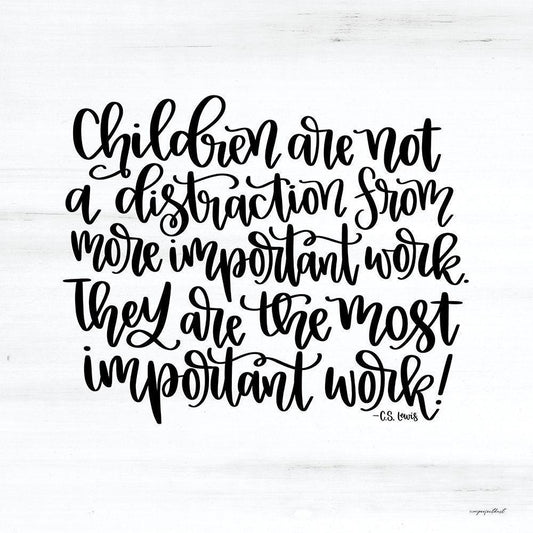 Children are not
a distraction from
more important work.
They are the most
important work!
-C.S. Lewis